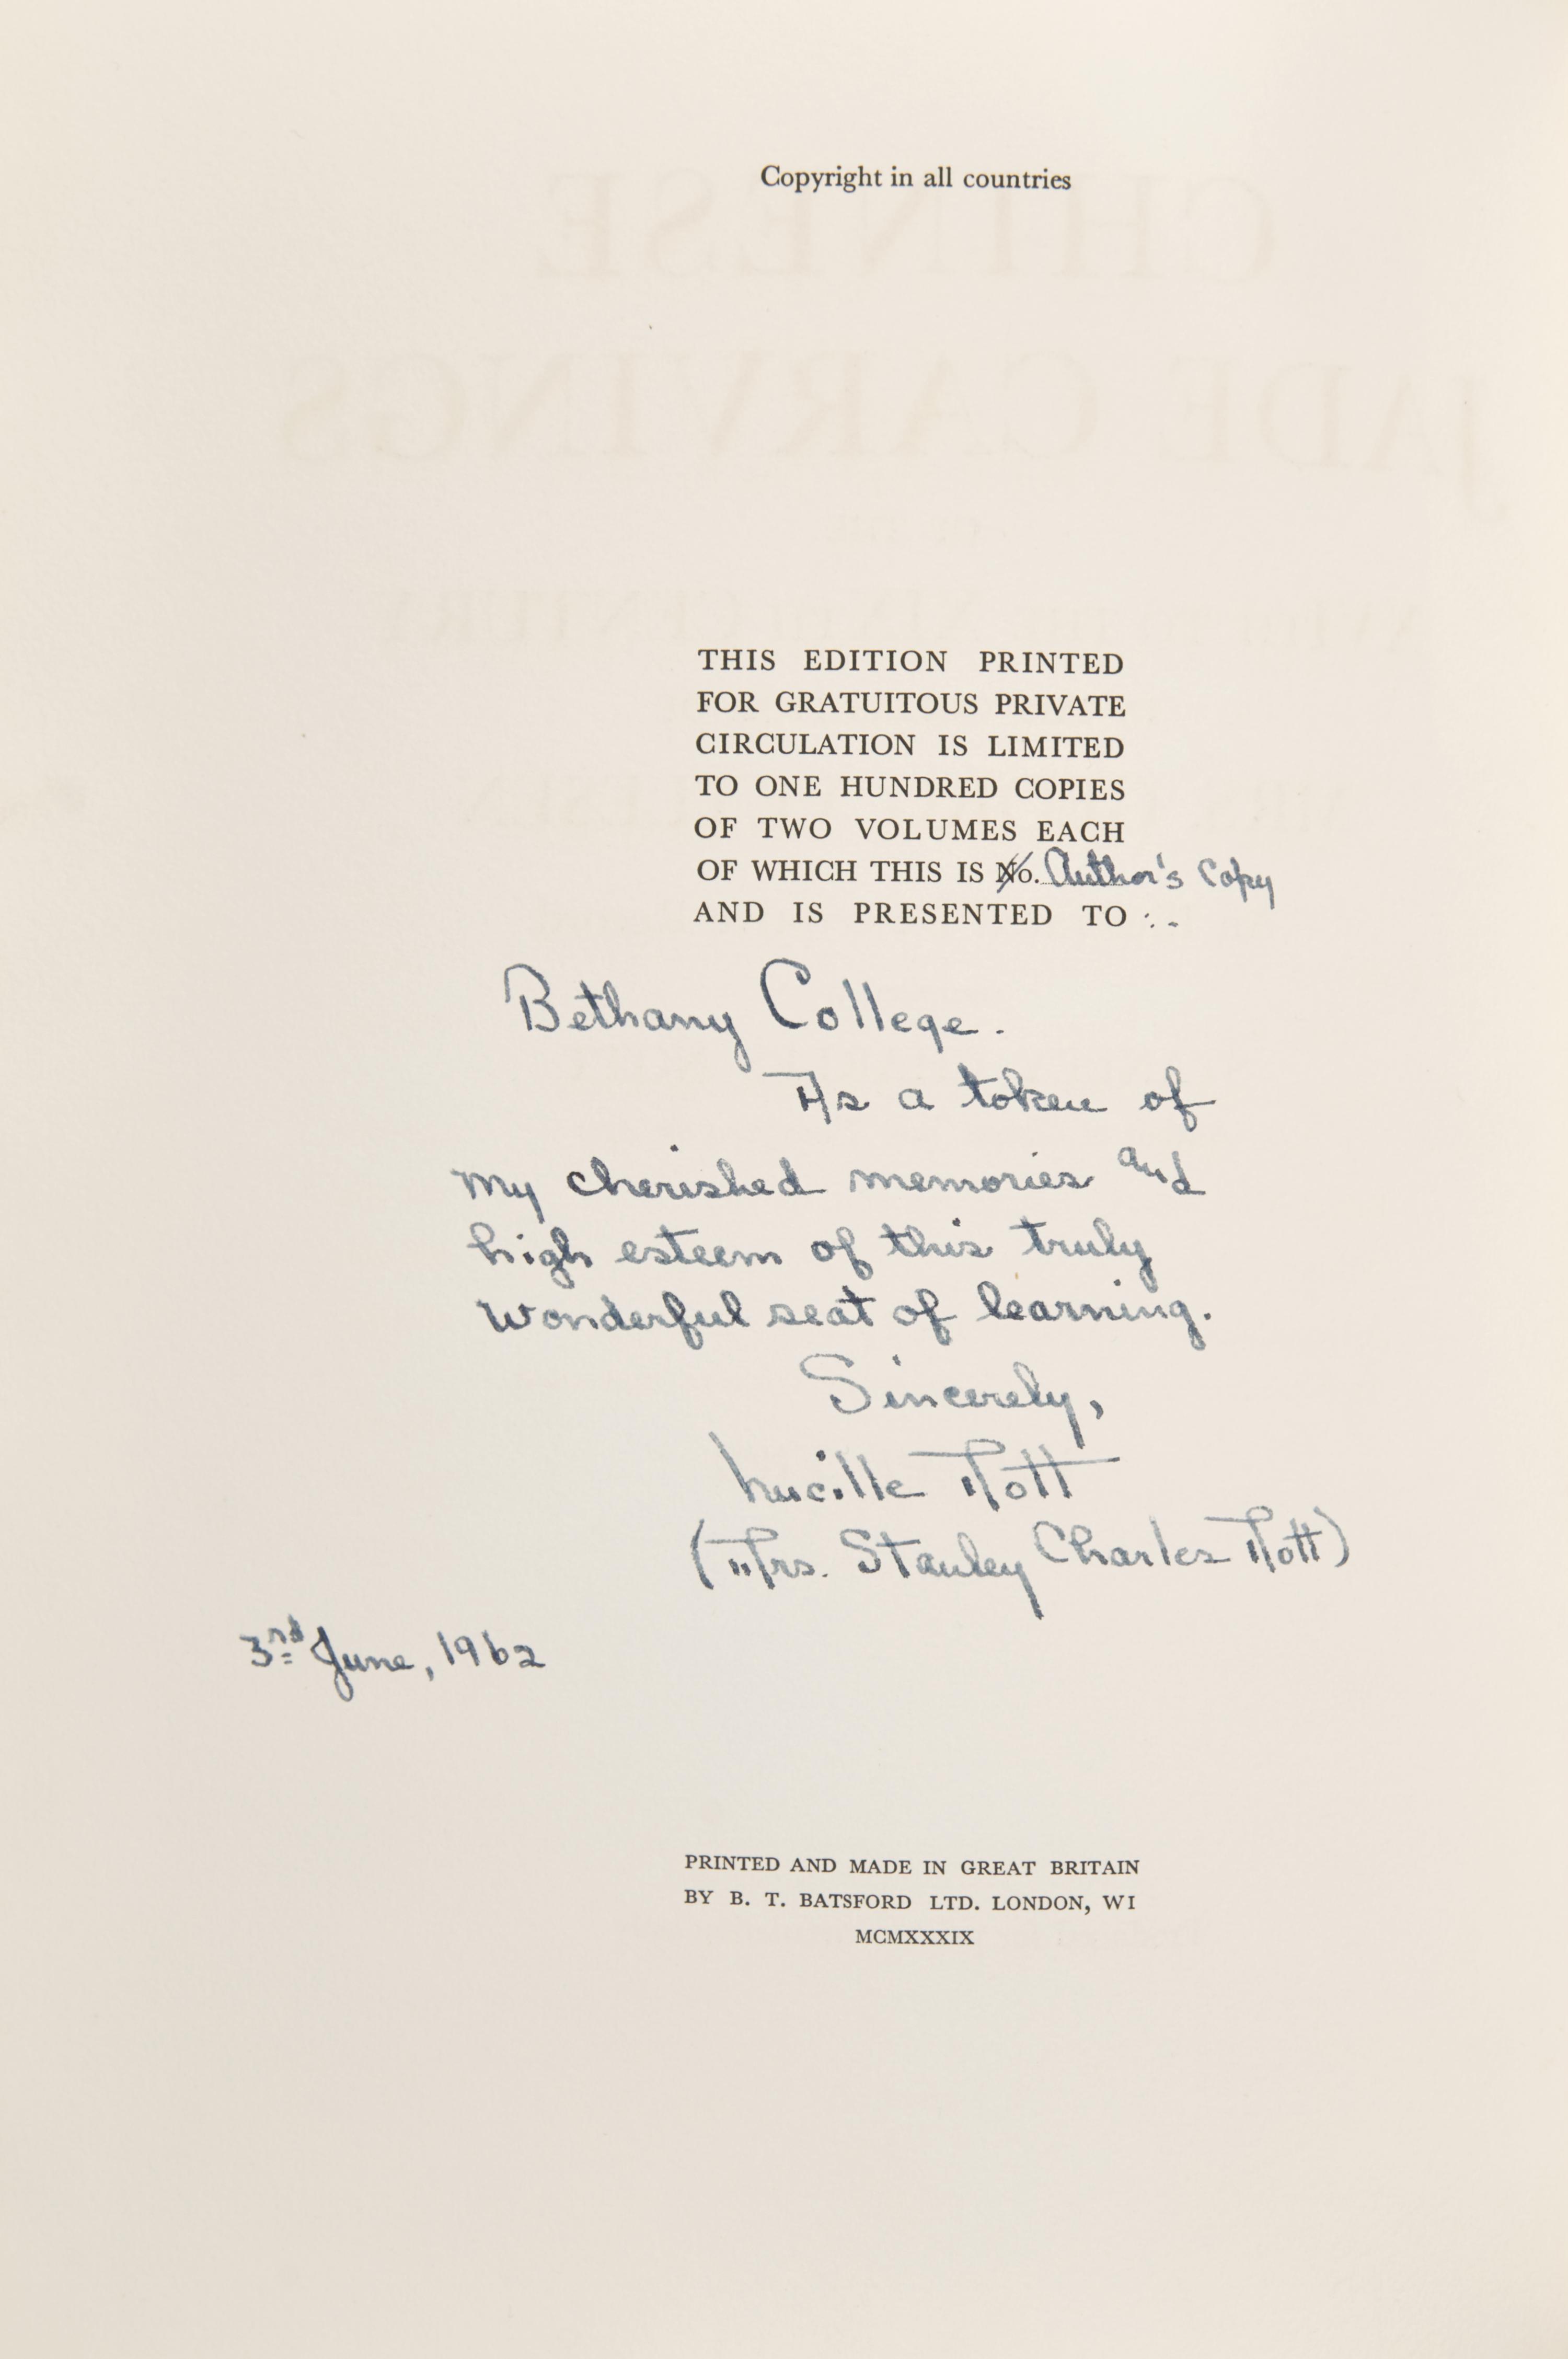 Copyright in all countries
THIS EDITION PRINTED
FOR GRATUITOUS PRIVATE
CIRCULATION IS LIMITED
TO ONE HUNDRED COPIES
OF TWO VOLUMES EACH
OF WHICH THIS IS No. Author's Copy
AND IS PRESENTED TO :-
Bethany College.
As a token of
my cherished memories and
high esteem of this truly
wonderful seat of learning.
Sincerely,
Lucille Nott
(Mrs. Stanley Charles Nott)
3rd June, 1962
PRINTED AND MADE IN GREAT BRITAIN
BY B. T. BATSFORD LTD. LONDON, W1
MCMXXXIX
CHINESE
JADE CARVINGS